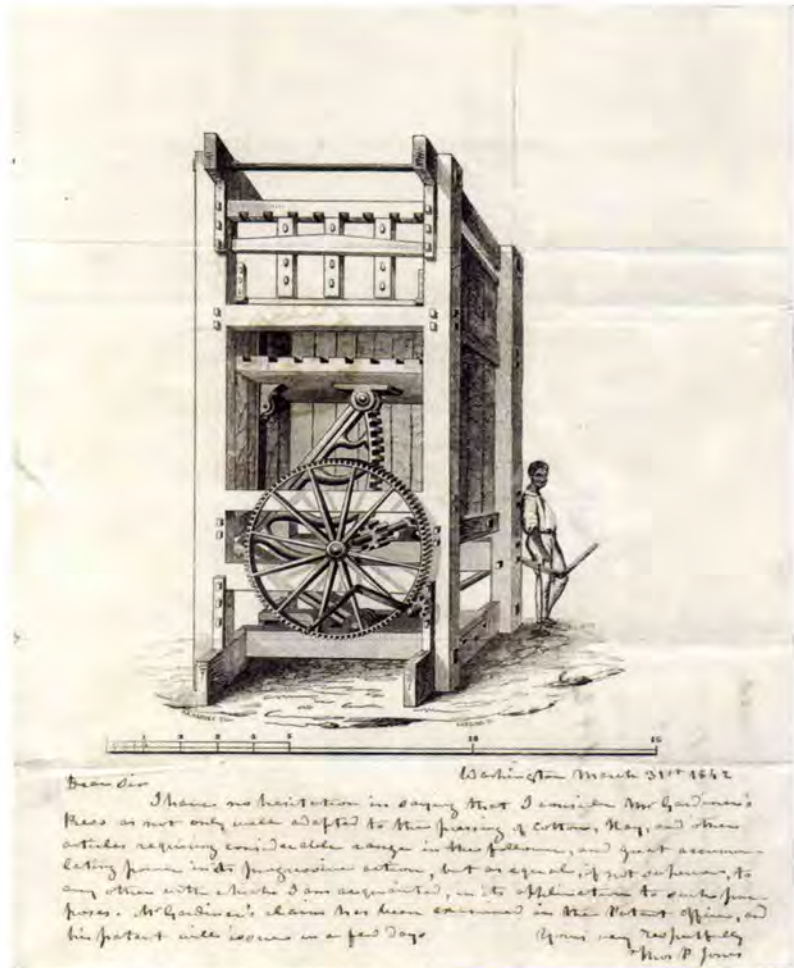 1 2 3 4 5 10 15
Washington March 31st 1842
Dear Sir
I have no hesitation in saying that I consider Mr Gardiner's
Press as not only well adapted to the pressing of Cotton, Hay, and other
articles requiring considerable range in the follower, and great accumu-
lating power in its progressive action, but as equal, if not superior, to
any other with which I am acquainted, in its application to such pur-
poses. Mr Gardiner's claim has been examined in the Patent Office, and
his patent will issue in a few days
Yours very respectfully
Thos P. Jones